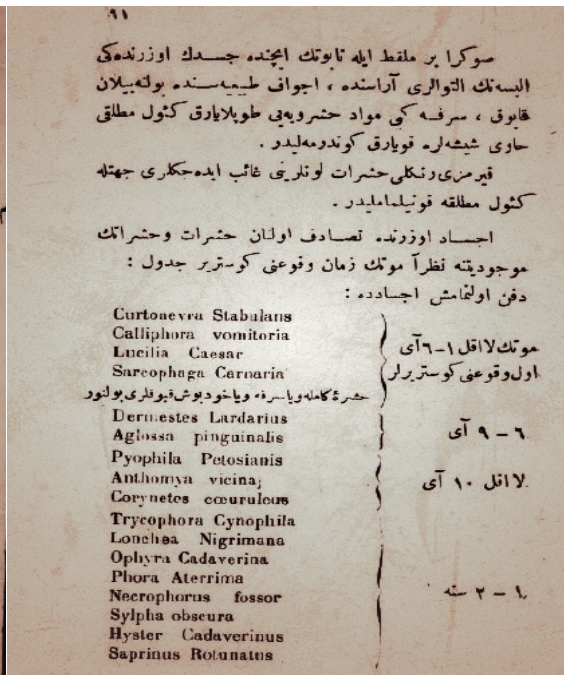 ٩١
صوكرا بر ملقط ايله تابوتك ايچنده جسدك اوزرنده‌كى
البسه‌نك التوالرى آراسنده ، اجواف طبيعيه‌سنده بولنه‌بيلان
قابوق ، سرفه كبى مواد حشرويه‌يى طوپلايارق كئول مطلقى
حاوى شيشه‌لره قويارق كوندرمه‌ليدر .
قيرمزى رنكلى حشرات لونلرينى غائب ايده‌جكلرى جهتله
كئول مطلقه قونيلماملیدر .
اجساد اوزرنده تصادف اولنان حشرات وحشراتك
موجوديتنه نظراً موتك زمان وقوعنى كوسترير جدول :
دفن اولنمامش اجسادده :
Curtonevra Stabulans
Calliphora vomitoria
Lucilia Caesar
Sarcophaga Carnaria
موتك لااقل ١-٦ آى
اول وقوعنى كوستريرلر
حشرۀ كامله وياسرفه وياخود بوش قبوقلرى بولنور
Dermestes Lardarius
Aglossa pinguinalis
٦ - ٩ آى
Pyophila Petosianis
Anthomya vicina
Corynetes cœuruleus
لااقل ١٠ آى
Trycophora Cynophila
Lonchea Nigrimana
Ophyra Cadaverina
Phora Aterrima
Necrophorus fossor
Sylpha obscura
Hyster Cadaverinus
Saprinus Rotunatus
١ - ٢ سنه